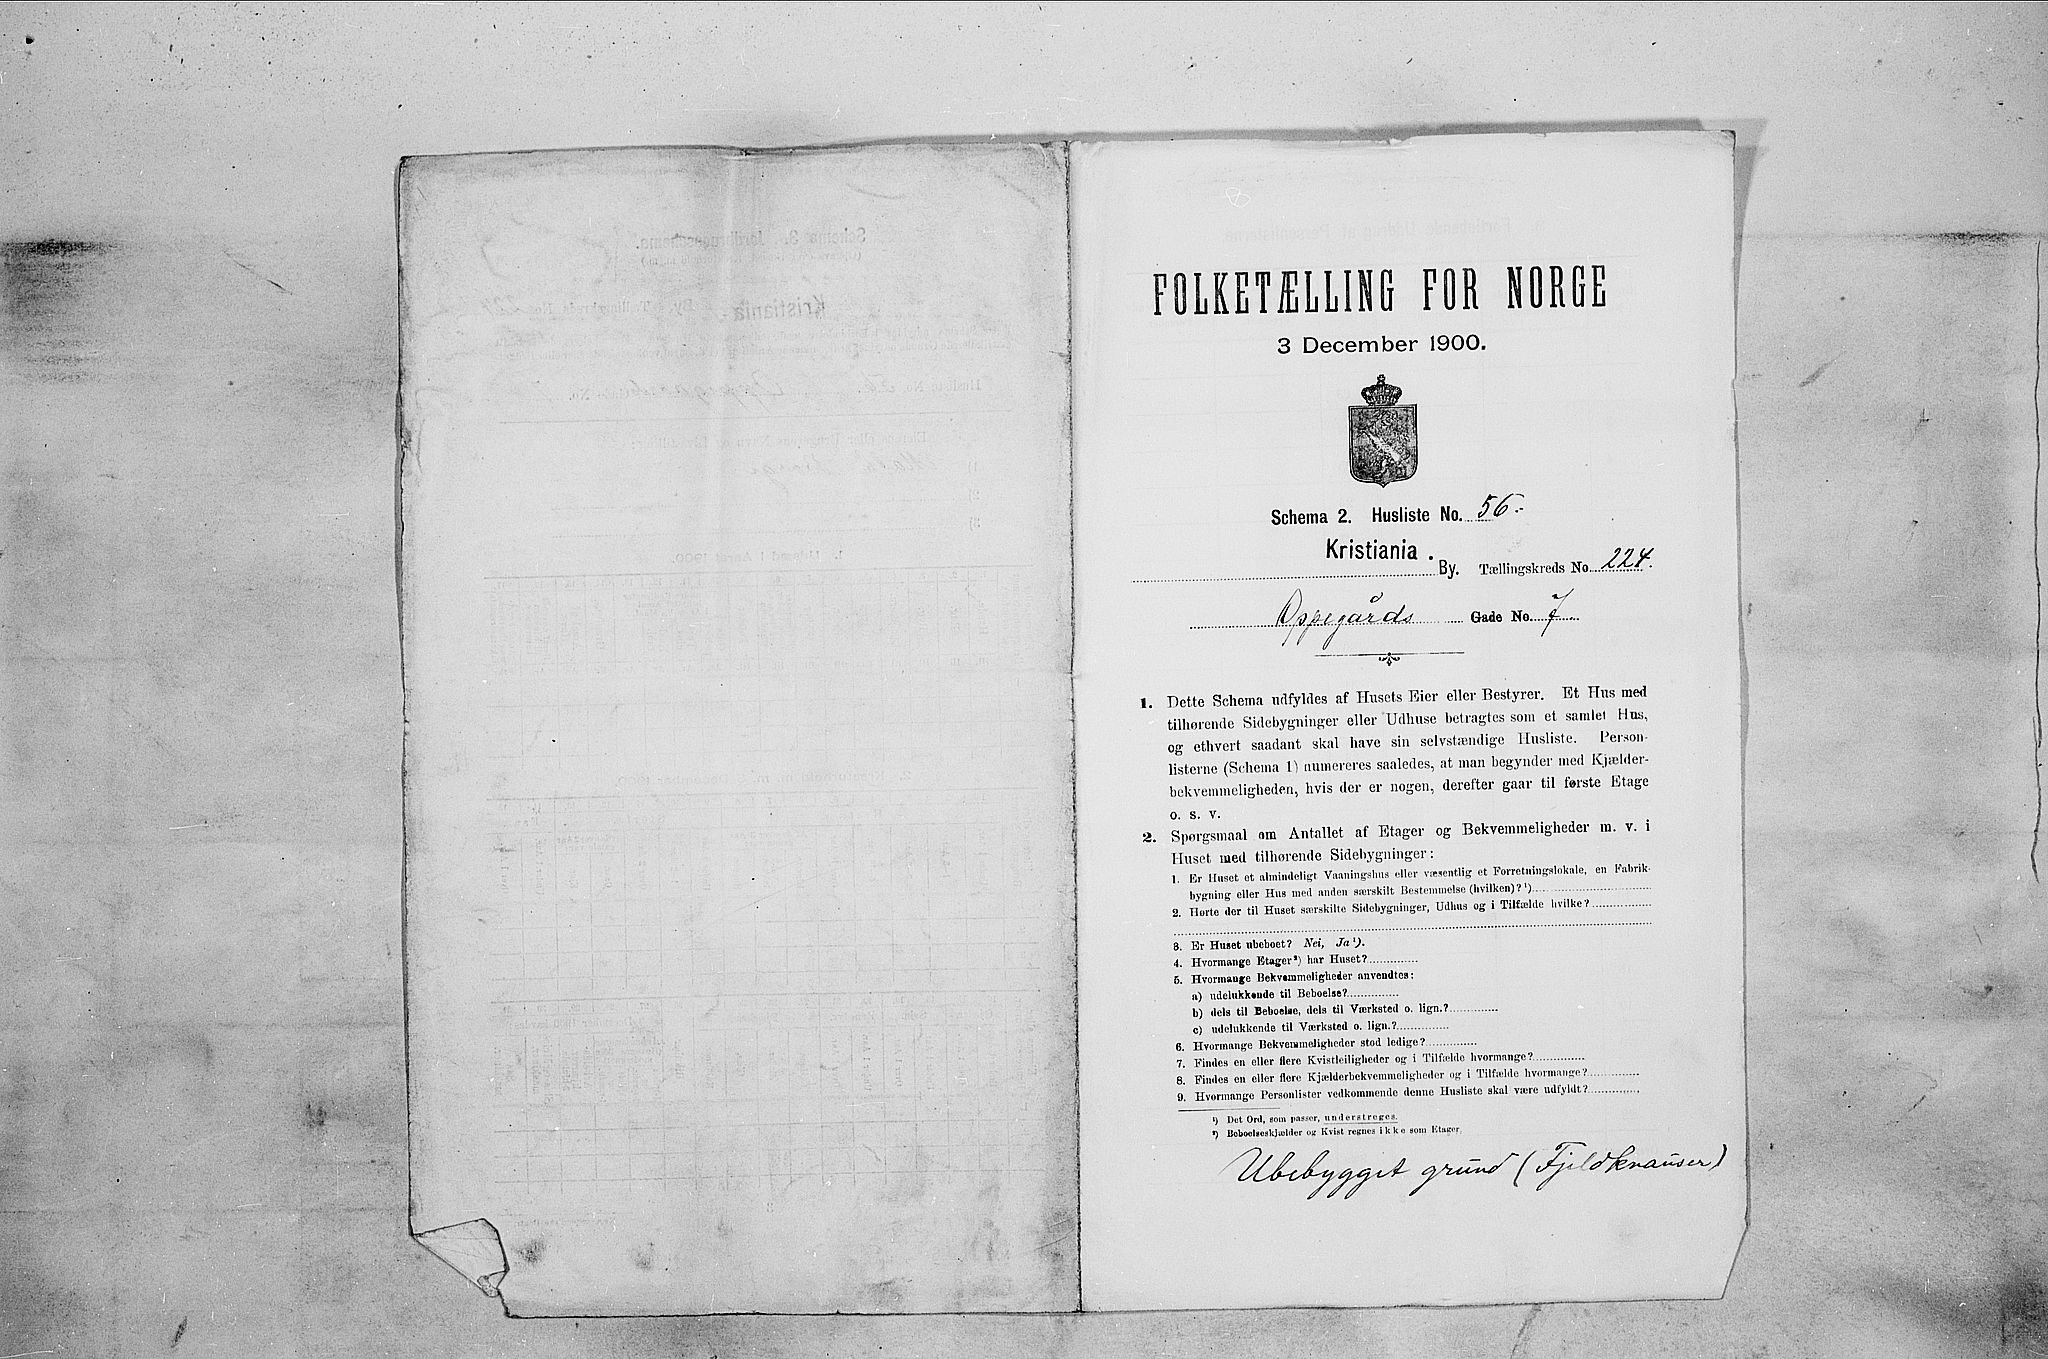 FOLKETÆLLING FOR NORGE
3 December 1900.
Schema 2. Husliste No. 56.
Kristiania.
By. Tællingskreds No. 224.
Oppegårds Gade No. 7
1. Dette Schema udfyldes af Husets Eier eller Bestyrer. Et Hus med
tilhørende Sidebygninger eller Udhuse betragtes som et samlet Hus,
og ethvert saadant skal have sin selvstændige Husliste. Person-
listerne (Schema 1) numereres saaledes, at man begynder med Kjælder-
bekvemmeligheden, hvis der er nogen, derefter gaar til første Etage
o. s. v.
2. Spørgsmaal om Antallet af Etager og Bekvemmeligheder m. v. i
Huset med tilhørende Sidebygninger:
1. Er Huset et almindeligt Vaaningshus eller væsentlig et Forretningslokale, en Fabrik-
bygning eller Hus med anden særskilt Bestemmelse (hvilken)? ¹)
2. Hørte der til Huset særskilte Sidebygninger, Udhus og i Tilfælde hvilke?
3. Er Huset ubeboet? Nei, Ja ¹).
4. Hvormange Etager ²) har Huset?
5. Hvormange Bekvemmeligheder anvendtes:
a) udelukkende til Beboelse?
b) dels til Beboelse, dels til Værksted o. lign.?
c) udelukkende til Værksted o. lign.?
6. Hvormange Bekvemmeligheder stod ledige?
7. Findes en eller flere Kvistleiligheder og i Tilfælde hvormange?
8. Findes en eller flere Kjælderbekvemmeligheder og i Tilfælde hvormange?
9. Hvormange Personlister vedkommende denne Husliste skal være udfyldt?
¹) Det Ord, som passer, understreges.
²) Beboelseskjælder og Kvist regnes ikke som Etager.
Ubebygget grund (Fjeldknauser)